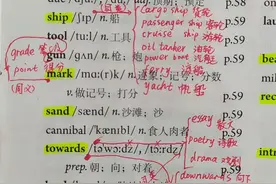 ship /ʃɪp/ n.船 p.59
cargo ship 货轮
passenger ship 客轮
cruise ship 游轮
tool /tuːl/ n.工具 p.59
oil tanker 油轮
gun /ɡʌn/ n.枪;炮 p.59
power boat 汽艇
grade
point 得分
ferry 渡船
mark /mɑː(r)k/ n.迹象;记号;分数
yacht 帆艇
v.做记号;打分 p.59
sand /sænd/ n.沙滩;沙 p.59
essay 散文
cannibal /ˈkænɪbl/ n.食人肉者 p.59
poetry 诗歌
towards /təˈwɔːdz/, /tɔːrdz/
drama 戏剧
prep.朝;向;对着 p.59
downwards 向下